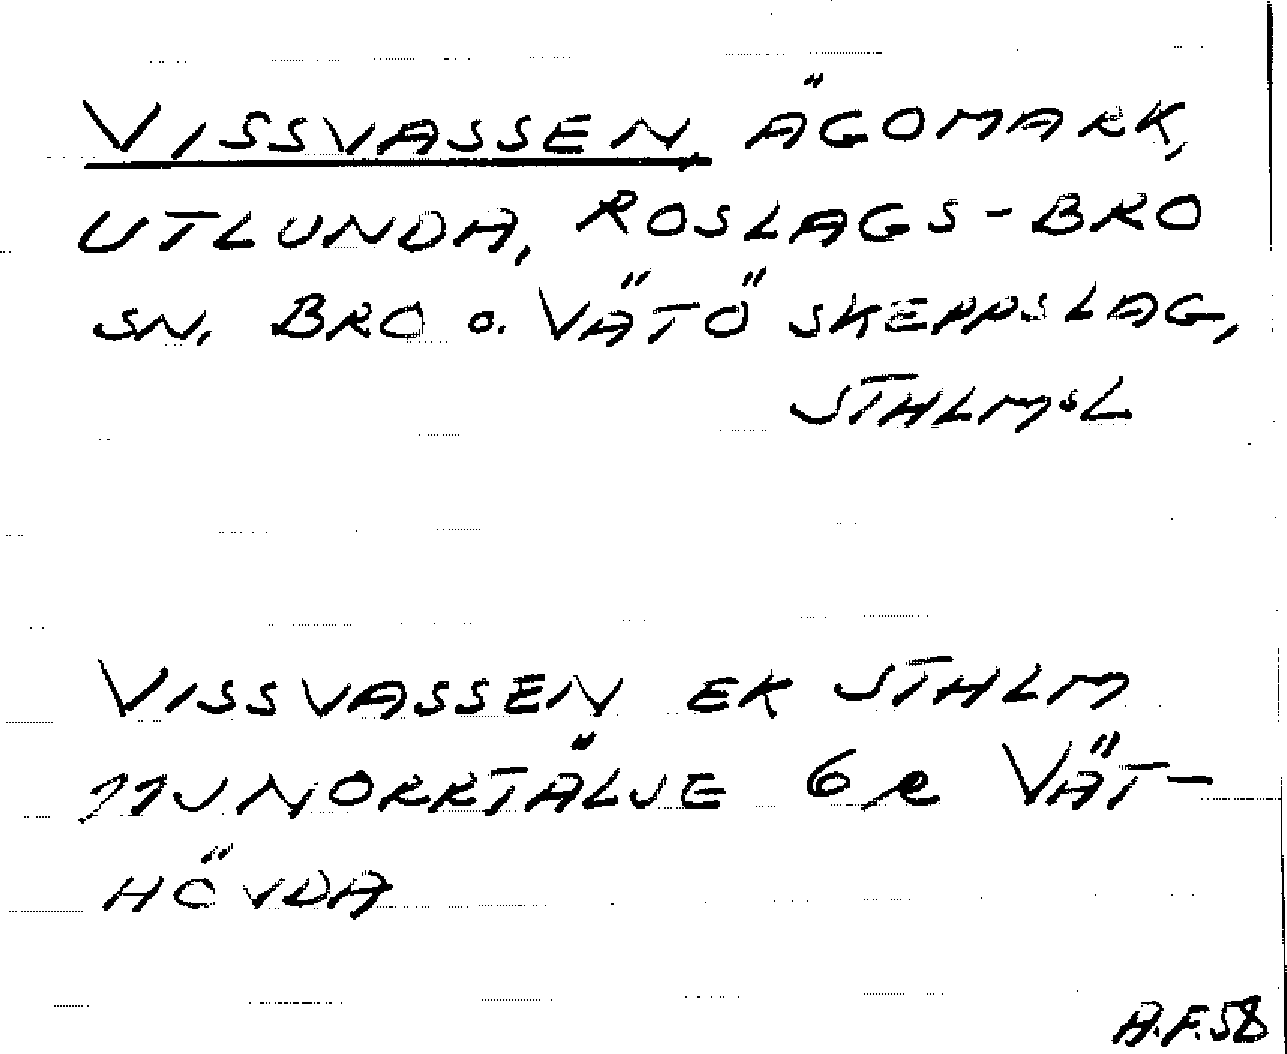 VISSVASSEN, ÄGOMARK,
UTLUNDA, ROSLAGS-BRO
SN. BRO o. VÄTÖ SKEPPSLAG,
STHLMsL
VISSVASSEN EK STHLM
11J NORRTÄLJE 6 e VÄT-
HÖVDA
A.F.58